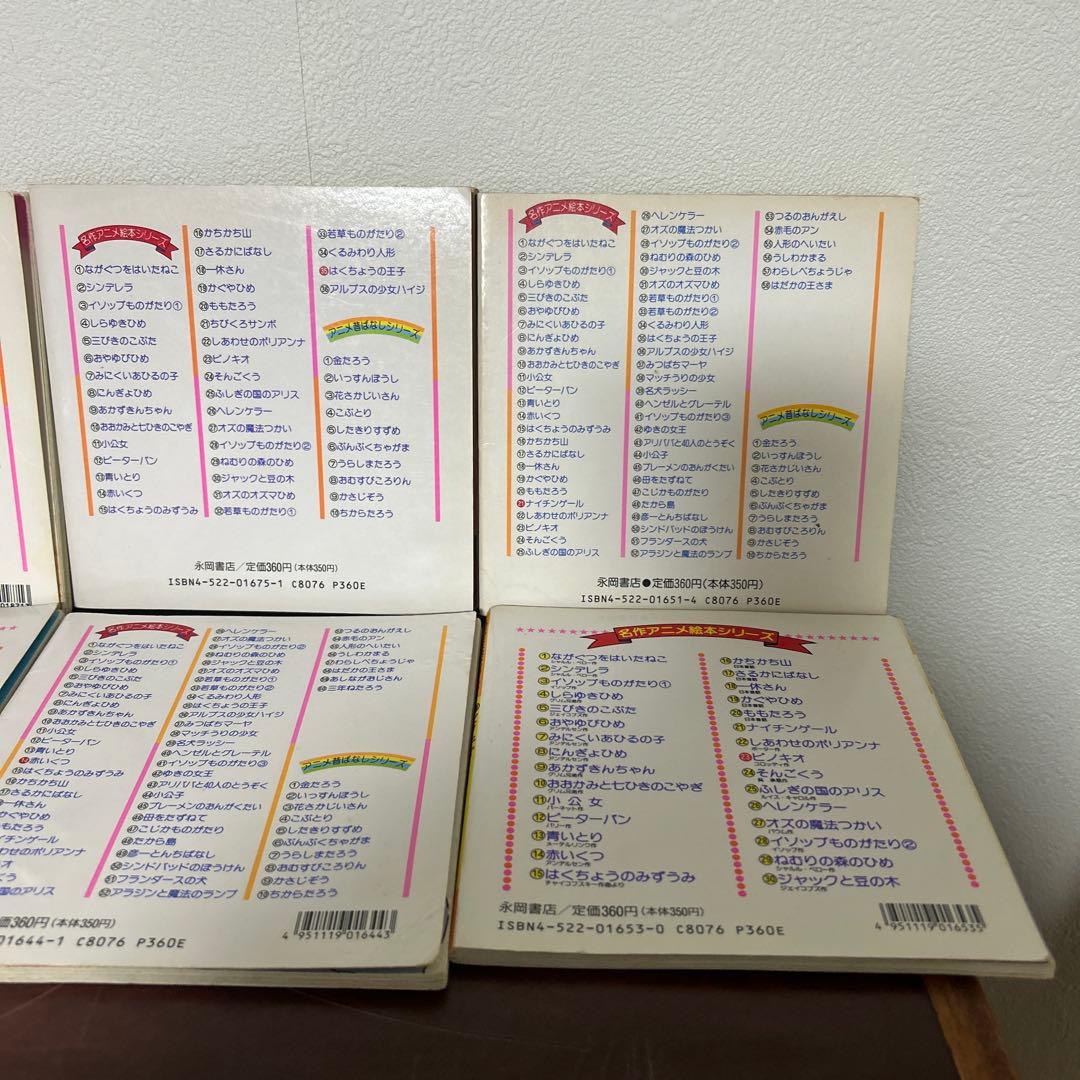 名作アニメ絵本シリーズ
①ながぐつをはいたねこ
②シンデレラ
③イソップものがたり①
④しらゆきひめ
⑤三びきのこぶた
⑥おやゆびひめ
⑦みにくいあひるの子
⑧にんぎょひめ
⑨あかずきんちゃん
⑩おおかみと七ひきのこやぎ
⑪小公女
⑫ピーターパン
⑬青いとり
⑭赤いくつ
⑮はくちょうのみずうみ
⑯かちかち山
⑰さるかにばなし
⑱一休さん
⑲かぐやひめ
⑳ももたろう
㉑ちびくろサンボ
㉒しあわせのポリアンナ
㉓ピノキオ
㉔そんごくう
㉕ふしぎの国のアリス
㉖ヘレンケラー
㉗オズの魔法つかい
㉘イソップものがたり②
㉙ねむりの森のひめ
㉚ジャックと豆の木
㉛オズのオズマひめ
㉜若草ものがたり①
㉝若草ものがたり②
㉞くるみわり人形
㉟はくちょうの王子
㊱アルプスの少女ハイジ
アニメ昔ばなしシリーズ
①金たろう
②いっすんぼうし
③花さかじいさん
④こぶとり
⑤したきりすずめ
⑥ぶんぶくちゃがま
⑦うらしまたろう
⑧おむすびころりん
⑨かさじぞう
⑩ちからたろう
永岡書店/定価360円(本体350円)
ISBN4-522-01675-1 C8076 P360E
名作アニメ絵本シリーズ
①ながぐつをはいたねこ
②シンデレラ
③イソップものがたり①
④しらゆきひめ
⑤三びきのこぶた
⑥おやゆびひめ
⑦みにくいあひるの子
⑧にんぎょひめ
⑨あかずきんちゃん
⑩おおかみと七ひきのこやぎ
⑪小公女
⑫ピーターパン
⑬青いとり
⑭赤いくつ
⑮はくちょうのみずうみ
⑯かちかち山
⑰さるかにばなし
⑱一休さん
⑲かぐやひめ
⑳ももたろう
㉑ナイチンゲール
㉒しあわせのポリアンナ
㉓ピノキオ
㉔そんごくう
㉕ふしぎの国のアリス
㉖ヘレンケラー
㉗オズの魔法つかい
㉘イソップものがたり②
㉙ねむりの森のひめ
㉚ジャックと豆の木
㉛オズのオズマひめ
㉜若草ものがたり①
㉞くるみわり人形
㉟はくちょうの王子
㊱アルプスの少女ハイジ
㊲みつばちマーヤ
㊳マッチうりの少女
㊴名犬ラッシー
㊵ヘンゼルとグレーテル
㊶イソップものがたり③
㊷ゆきの女王
㊸アリババと40人のとうぞく
㊹小公子
㊺ブレーメンのおんがくたい
㊻母をたずねて
㊼こじかものがたり
㊽たから島
㊾彦一とんちばなし
㊿シンドバッドのぼうけん
51フランダースの犬
52アラジンと魔法のランプ
53つるのおんがえし
54赤毛のアン
55人形のへいたい
56うしわかまる
57わらしべちょうじゃ
58はだかの王さま
アニメ昔ばなしシリーズ
①金たろう
②いっすんぼうし
③花さかじいさん
④こぶとり
⑤したきりすずめ
⑥ぶんぶくちゃがま
⑦うらしまたろう
⑧おむすびころりん
⑨かさじぞう
⑩ちからたろう
永岡書店●定価360円(本体350円)
ISBN4-522-01651-4 C8076 P360E
名作アニメ絵本シリーズ
①ながぐつをはいたねこ
②シンデレラ
③イソップものがたり①
④しらゆきひめ
⑤三びきのこぶた
⑥おやゆびひめ
⑦みにくいあひるの子
⑧にんぎょひめ
⑨あかずきんちゃん
⑩おおかみと七ひきのこやぎ
⑪小公女
⑫ピーターパン
⑬青いとり
⑭赤いくつ
⑮はくちょうのみずうみ
⑯かちかち山
⑰さるかにばなし
一休さん
かぐやひめ
ももたろう
イチンゲール
わせのポリアンナ
キオ
くう
の国のアリス
㉖ヘレンケラー
㉗オズの魔法つかい
㉘イソップものがたり②
㉙ねむりの森のひめ
㉚ジャックと豆の木
㉛オズのオズマひめ
㉜若草ものがたり①
㉝若草ものがたり②
㉞くるみわり人形
㉟はくちょうの王子
㊱アルプスの少女ハイジ
㊲みつばちマーヤ
㊳マッチうりの少女
㊴名犬ラッシー
㊵ヘンゼルとグレーテル
㊶イソップものがたり③
㊷ゆきの女王
㊸アリババと40人のとうぞく
㊹小公子
㊺ブレーメンのおんがくたい
㊻母をたずねて
㊼こじかものがたり
㊽たから島
㊾彦一とんちばなし
㊿シンドバッドのぼうけん
51フランダースの犬
52アラジンと魔法のランプ
53つるのおんがえし
54赤毛のアン
55人形のへいたい
56うしわかまる
57わらしべちょうじゃ
58はだかの王さま
59あしながおじさん
60三年ねたろう
アニメ昔ばなしシリーズ
①金たろう
②いっすんぼうし
③花さかじいさん
④こぶとり
⑤したきりすずめ
⑥ぶんぶくちゃがま
⑦うらしまたろう
⑧おむすびころりん
⑨かさじぞう
⑩ちからたろう
価360円(本体350円)
01644-1 C8076 P360E
4 951119 016443
名作アニメ絵本シリーズ
①ながぐつをはいたねこ
シャルル・ペロー作
②シンデレラ
シャルル・ペロー作
③イソップものがたり①
イソップ作
④しらゆきひめ
グリム兄弟作
⑤三びきのこぶた
ジェイコブズ作
⑥おやゆびひめ
アンデルセン作
⑦みにくいあひるの子
アンデルセン作
⑧にんぎょひめ
アンデルセン作
⑨あかずきんちゃん
グリム兄弟作
⑩おおかみと七ひきのこやぎ
グリム兄弟作
⑪小公女
バーネット作
⑫ピーターパン
バリー作
⑬青いとり
メーテルリンク作
⑭赤いくつ
アンデルセン作
⑮はくちょうのみずうみ
チャイコフスキー作曲より
⑯かちかち山
日本昔話
⑰さるかにばなし
日本昔話
⑱一休さん
日本昔話
⑲かぐやひめ
日本昔話
⑳ももたろう
日本昔話
㉑ナイチンゲール
㉒しあわせのポリアンナ
ポーター作
㉓ピノキオ
コロッディ作
㉔そんごくう
呉 承恩作
㉕ふしぎの国のアリス
ルイス・キャロル作
㉖ヘレンケラー
㉗オズの魔法つかい
バウム作
㉘イソップものがたり②
イソップ作
㉙ねむりの森のひめ
シャルル・ペロー作
㉚ジャックと豆の木
ジェイコブズ作
永岡書店/定価360円(本体350円)
ISBN4-522-01653-0 C8076 P360E
4 951119 016535